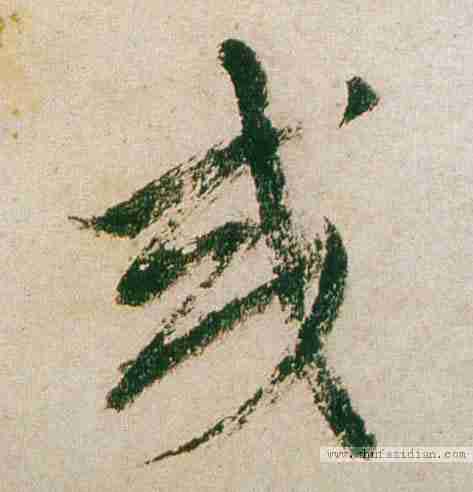 或
www.shufazidian.com